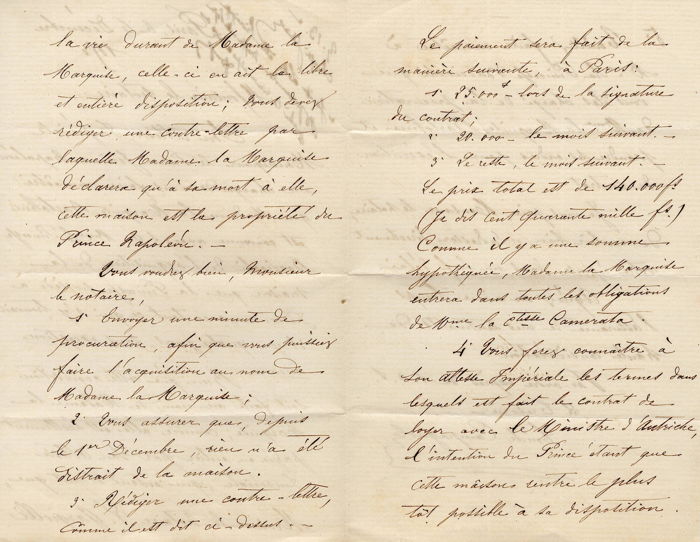 la vie durant de Madame la
Marquise, celle-ci en ait la libre
et entière disposition; vous devez
rédiger une contre-lettre par
laquelle Madame la Marquise
déclarera qu'à sa mort à elle,
cette maison est la propriété du
Prince Napoléon. —
Vous voudrez bien, Monsieur
le notaire,
1° Envoyer une minute de
procuration, afin que vous puissiez
faire l'acquisition au nom de
Madame la Marquise;
2° Vous assurer que, depuis
le 1er Décembre, rien n'a été
distrait de la maison.
3° Rédiger une contre-lettre,
comme il est dit ci-dessus. —
Le paiement sera fait de la
manière suivante, à Paris:
1° 25.000f — lors de la signature
du contrat;
2° 20.000 — le mois suivant. —
3° Le reste, le mois suivant. —
Le prix total est de 140.000fs
(Je dis cent quarante mille fs.)
Comme il y a une somme
hypothéquée, Madame la Marquise
entrera dans toutes les obligations
de Mme la Ctesse Camerata
4° Vous ferez connaître à
Son Altesse Impériale les termes dans
lesquels est fait le contrat de
loyer avec le Ministre d'Autriche,
l'intention du Prince étant que
cette maison rentre le plus
tôt possible à sa disposition.